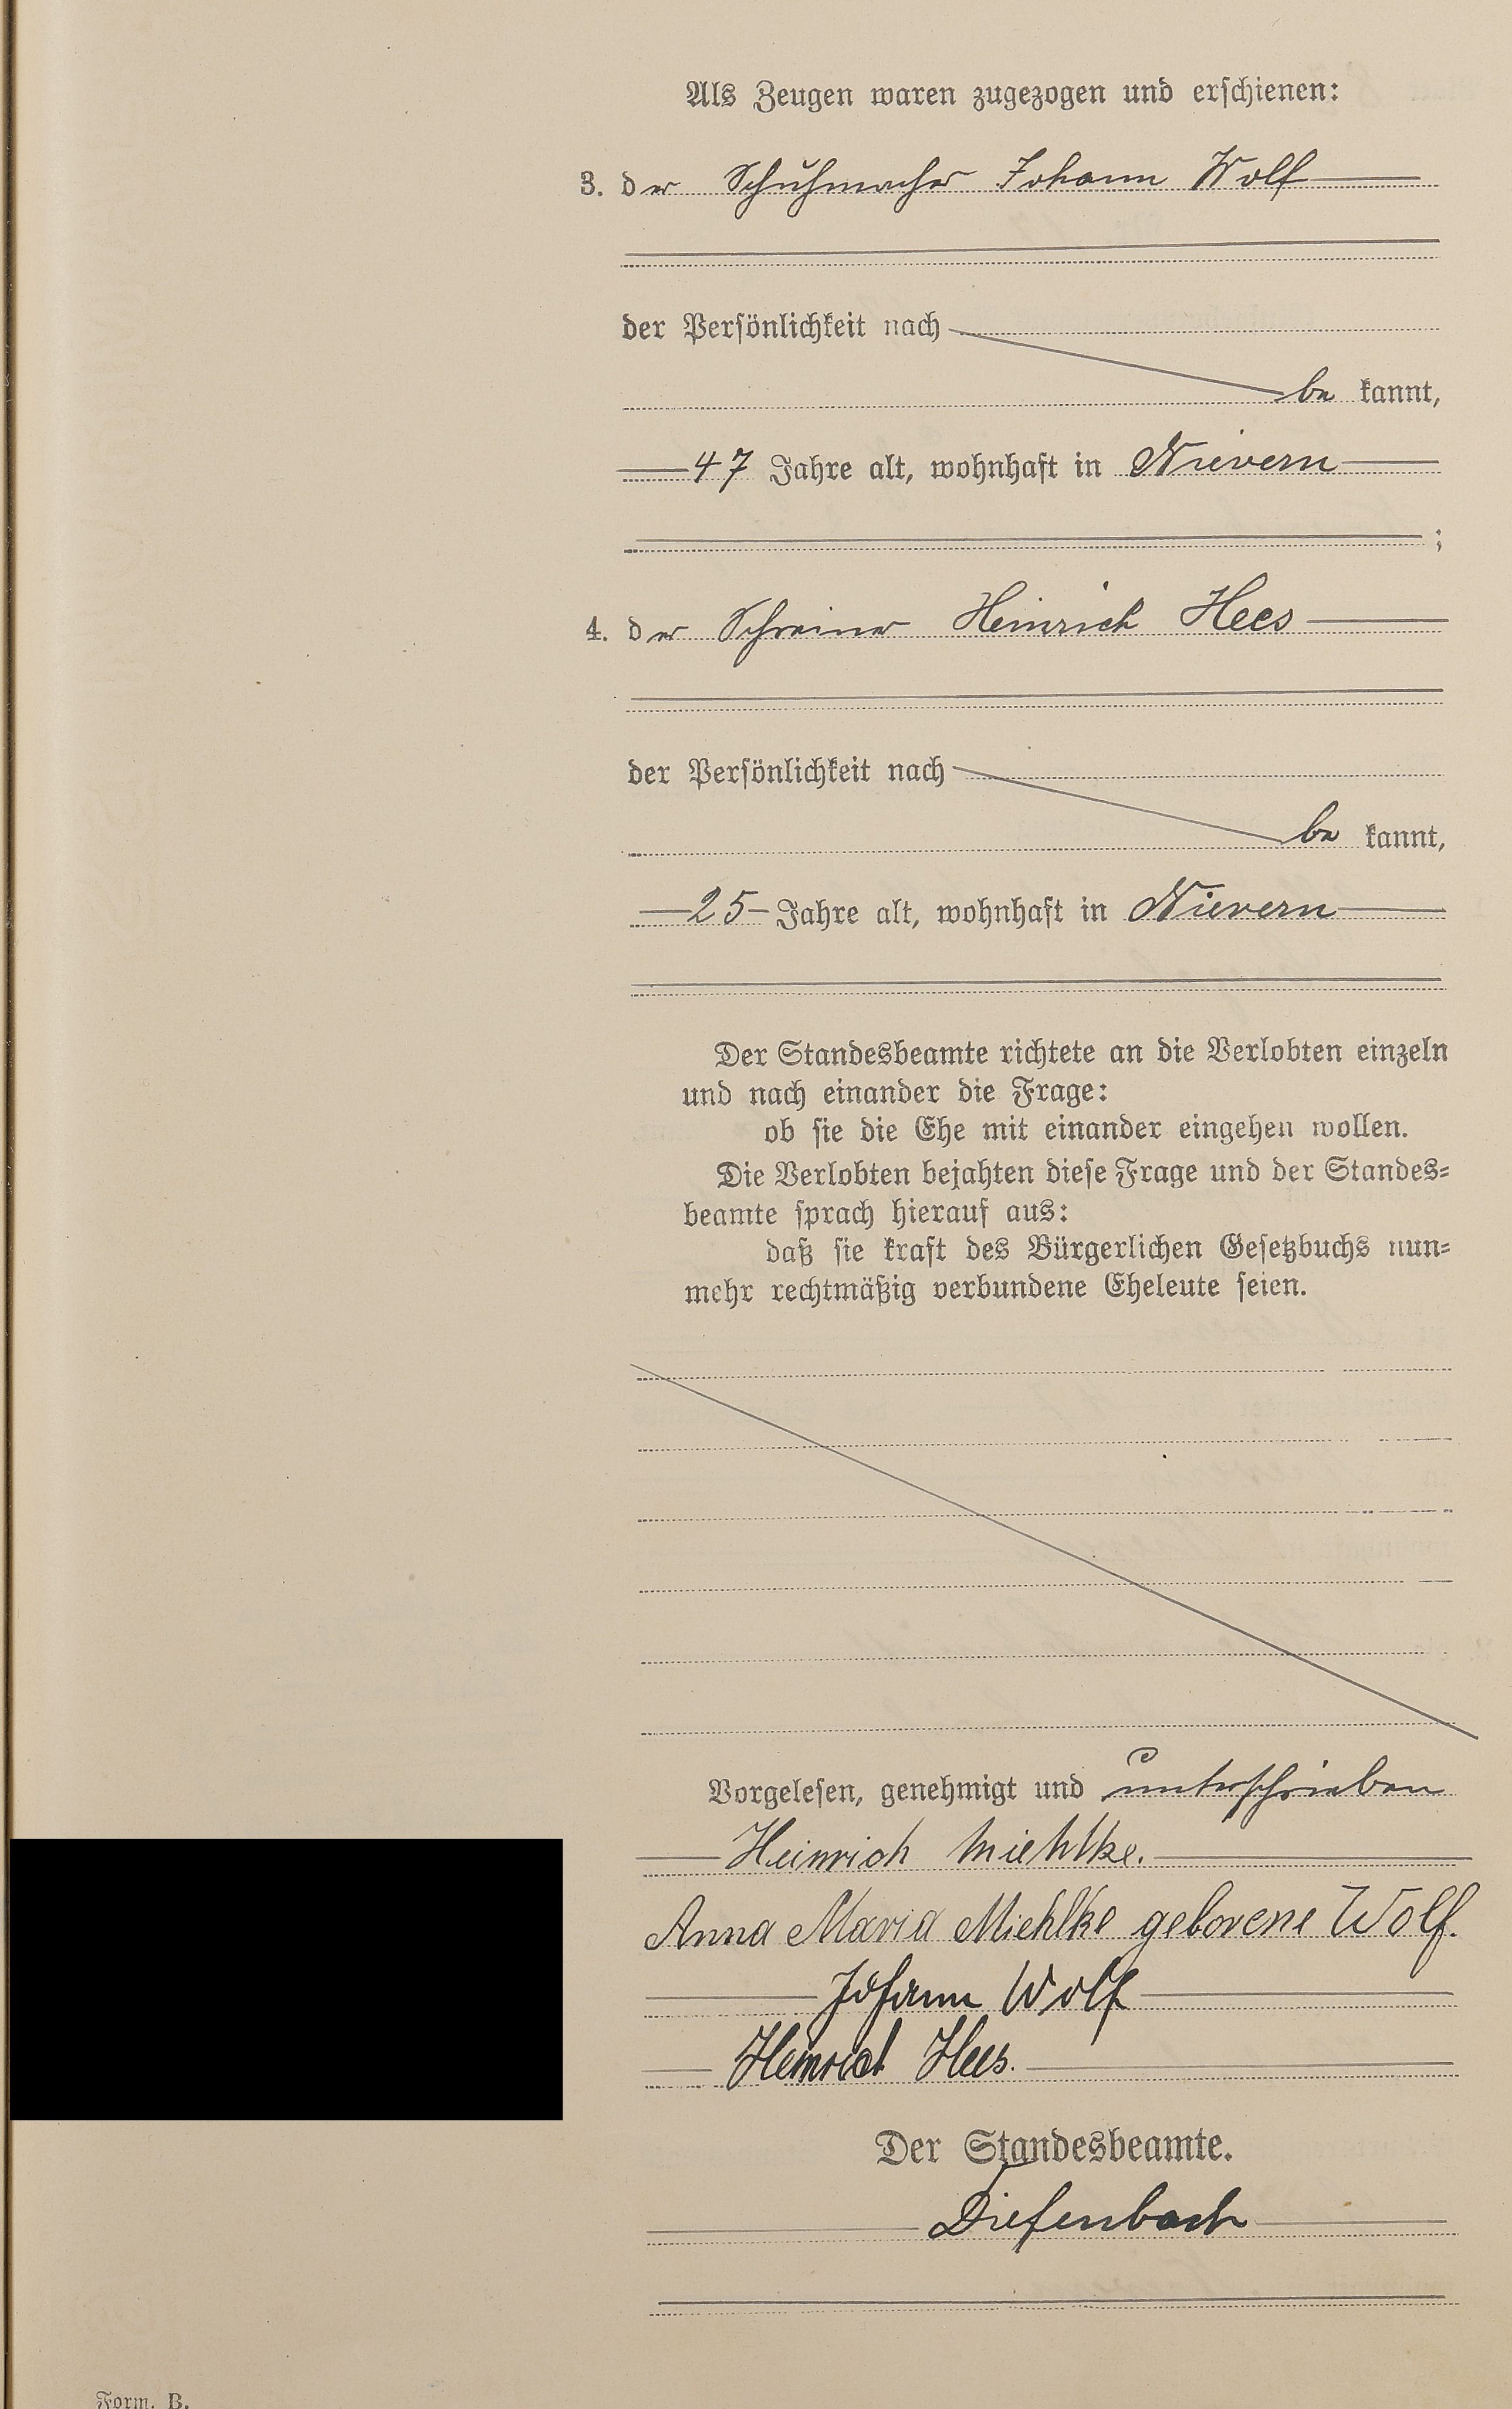 Als Zeugen waren zugezogen und erschienen:
3. der Schuhmacher Johann Wolf
der Persönlichkeit nach
be kannt,
47 Jahre alt, wohnhaft in Nievern
;
4. der Schreiner Heinrich Hees
der Persönlichkeit nach
be kannt,
25 Jahre alt, wohnhaft in Nievern
Der Standesbeamte richtete an die Verlobten einzeln
und nach einander die Frage:
ob sie die Ehe mit einander eingehen wollen.
Die Verlobten bejahten diese Frage und der Standes=
beamte sprach hierauf aus:
daß sie kraft des Bürgerlichen Gesetzbuchs nun=
mehr rechtmäßig verbundene Eheleute seien.
Vorgelesen, genehmigt und unterschrieben
Heinrich Miehlke.
Anna Maria Miehlke geborene Wolf.
Johann Wolf
Heinrich Hees.
Der Standesbeamte.
Diefenbach
Form. B.